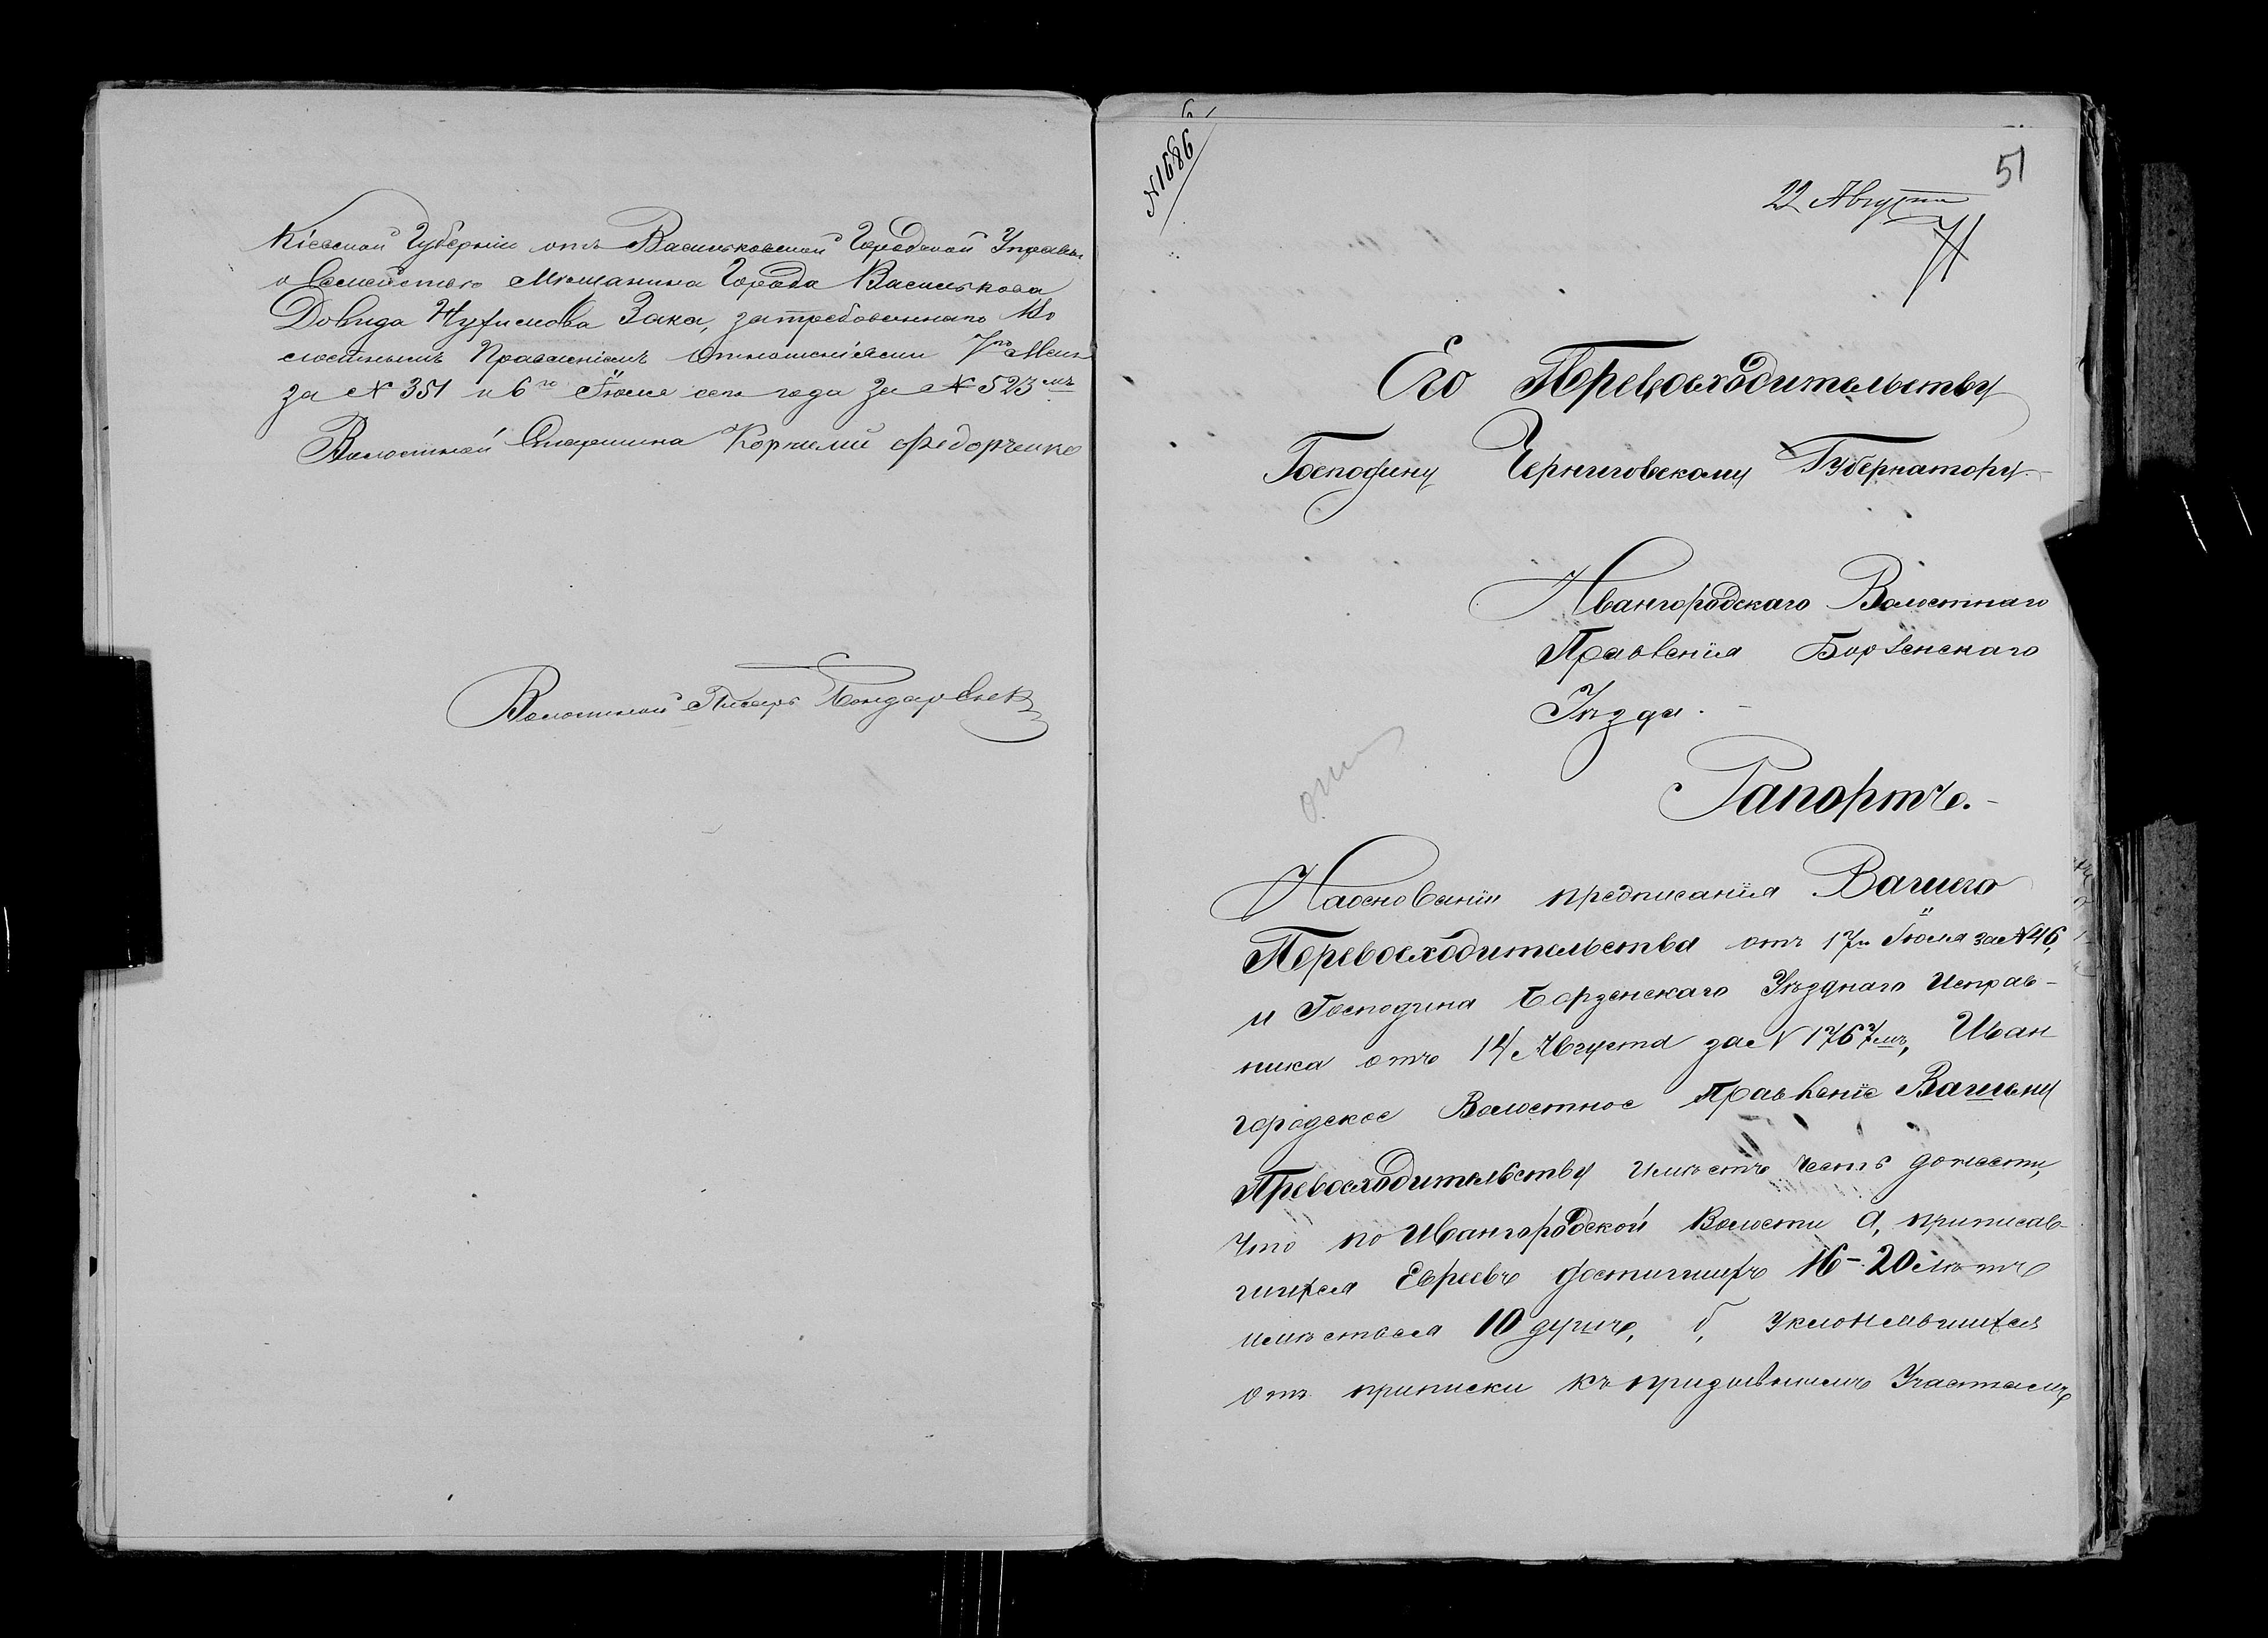 Кіевской Губерніи отъ Васильковской Городской Управы
о Семействе Мѣщанина Города Василькова
Довида Нухимова Зака, затребованнаго Во
лостнымъ Правленіемъ Отношеніями 7го Мая
за № 351 и 6го Іюля сего года за № 523мъ
Волостной Старшина Корнилий Федорченко
Волостной Писарь
№ 1686
51
22 Августа
Его Превосходительству
Господину Черниговскому Губернатору
Ивангородскаго Волостнаго
Правленія Борзенскаго
Уѣзда.
Рапортъ.
На основаніи предписанія Вашего
Превосходительства отъ 17го Іюля за № 46,
и Господина Борзенскаго Уѣзднаго Исправ-
ника отъ 14 Августа за № 1767мъ, Иван
городское Волостное Правленіе Вашему
Превосходительству имѣетъ честь донести,
что по Ивангородской Волости а, приписав
шихся Евреевъ достигшихъ 16-20 лѣтъ
имѣется 10 душъ, б, уклонявшихся
отъ приписки къ призывнымъ Участкамъ,